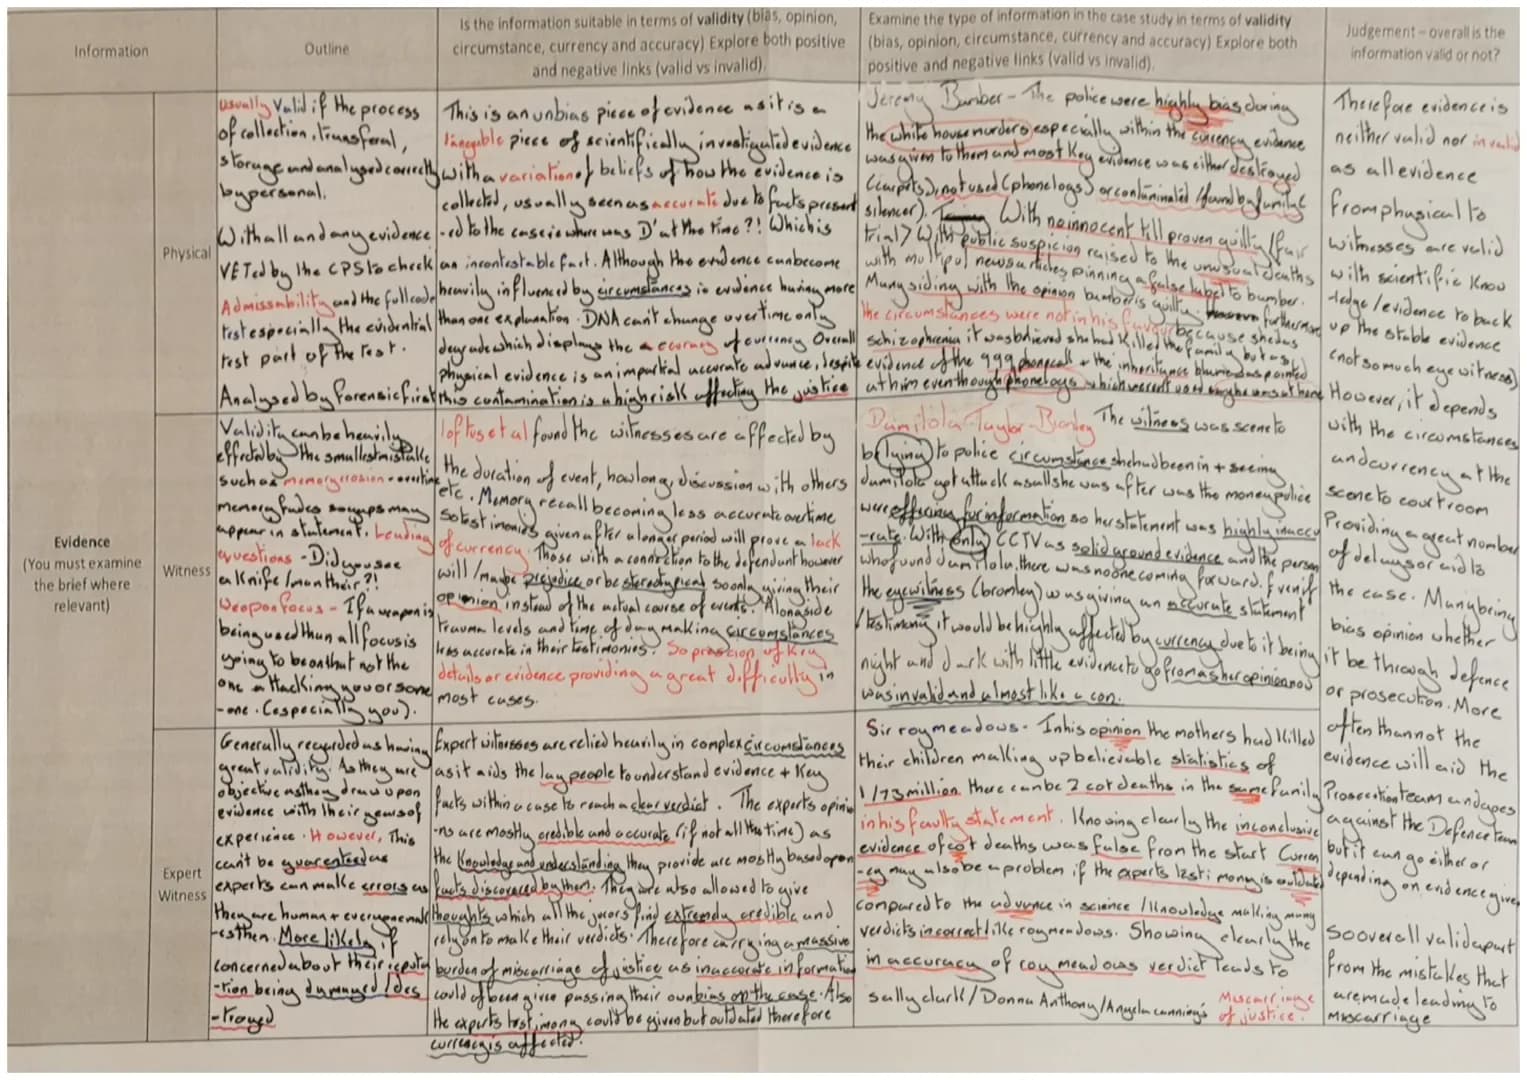 Information
Outline
Is the information suitable in terms of validity (bias, opinion,
circumstance, currency and accuracy) Explore both positive
and negative links (valid vs invalid).
Examine the type of information in the case study in terms of validity
(bias, opinion, circumstance, currency and accuracy) Explore both
positive and negative links (valid vs invalid).
Judgement – overall is the
information valid or not?
Evidence
(You must examine
the brief where
relevant)
Physical
usually Valid if the process
of collection, transferal,
storage and analysed correctly
by personal.
With all and any evidence
VETed by the CPS to check
Admissability and the full code
test especially the evidential
test part of the test.
Analysed by forensic first
This is an unbias piece of evidence as it is a
tangable piece of scientifically investigated evidence
with a variation of beliefs of how the evidence is
collected, usually seen as accurate due to facts present
-ed to the case ie where was D' at the time?! Which is
an incontestable fact. Although the evidence can become
heavily influenced by circumstances ie evidence having more
than one explanation. DNA can't change over time only
degrade which displays the accuracy of currency Overall
physical evidence is an impartial accurate advance, despite
this contamination is a high risk affecting the justice
Jeremy Bamber - The police were highly bias during
the white house murders especially within the currency evidence
was given to them and most key evidence was either destroyed
(carpets), not used (phonelogs) or contaminated (found by family
silencer). With no innocent till proven guilty/fair
trial> With public suspicion raised to the unusual deaths
with multipul news articles pinning a false label to bamber.
Many siding with the opinion bamber is guilty. furthermore
the circumstances were not in his favour because she das
schizophrenia it was believed she had killed the family but as
evidence of the 999 phonecall + the inheritance blame das pointed
at him even though phonelogs which werent used
Therefore evidence is
neither valid nor invalid
as all evidence
from physical to
witnesses are valid
with scientific know
-ledge/evidence to back
up the stable evidence
(not so much eye witness)
However, it depends
with the circumstances
and currency at the
scene to court room
Providing a great number
of delays or aid to
the case. Many being
bias opinion whether
it be through defence
or prosecution. More
often than not the
evidence will aid the
Prosecution team and
against the Defence team
but it can go either or
depending on evidence given
So overall valid apart
from the mistakes that
are made leading to
miscarriage
Witness
Validity can be heavily
effected by the smallest mistake
such as memory erosion - overtime
memory fades so gaps may
appear in statement. Leading
questions - Did you see
a knife/man their?!
Weapon focus - If a weapon is
being used than all focus is
going to be on that not the
one attacking you or some
-one. (especially you).
loftus et al found the witnesses are affected by
the duration of event, how long, discussion with others
etc. Memory recall becoming less accurate overtime
so testimonies given after a longer period will prove a lack
of currency. Those with a connection to the defendant however
will/maybe prejudice or be stereotypical so only giving their
opinion instead of the actual course of events. Alongside
trauma levels and time of day making circumstances
less accurate in their testimonies. So of key
details or evidence providing a great difficulty in
most cases.
Damilola Taylor - Bromley The witness was scene to
be lying to police circumstance she had been in + seeing
damilola get attack as all she was after was the money police
were offering for information so her statement was highly inaccu
-rate. With only CCTV as solid ground evidence and the person
who found damilola, there was no one coming forward. Even if
the eyewitness (bromley) was giving an accurate statement
/testimony it would be highly affected by currency due to it being
night and dark with little evidence to go from as her opinion now
was invalid and almost like a con.
Expert
Witness
Generally regarded as having
great validity. As they are
objective as they draw upon
evidence with their years of
experience. However, This
can't be guarenteed as
experts can make errors as
they are human + everyone mak
-es then. More likely if
concerned about their reputa
-tion being damaged/des
-troyed
Expert witnesses are relied heavily in complex circumstances
as it aids the lay people to understand evidence + key
facts within a case to reach a clear verdict. The experts opinio
-ns are mostly credible and accurate (if not all the time) as
the knowledge and understanding they provide are mostly based upon
facts discovered by them. They are also allowed to give
thoughts which all the jurors find extremely credible and
rely on to make their verdicts. Therefore carrying a massive
burden of miscarriage of justice as inaccurate information
could of been given passing their own bias on the case. Also
the experts testimony could be given but outdated therefore
currency is affected.
Sir roy meadows - In his opinion the mothers had killed
their children making up believable statistics of
1/73 million there can be 2 cot deaths in the same family
in his faulty statement. Knowing clearly the inconclusive
evidence of cot deaths was false from the start Curren
-cy may also be a problem if the experts testimony is outdated
compared to the advance in science/knowledge making many
verdicts incorrect like roy meadows. Showing clearly the
in accuracy of roy meadows verdict leads to
sally clark/Donna Anthony/Angela canning's Miscarriage
of justice.